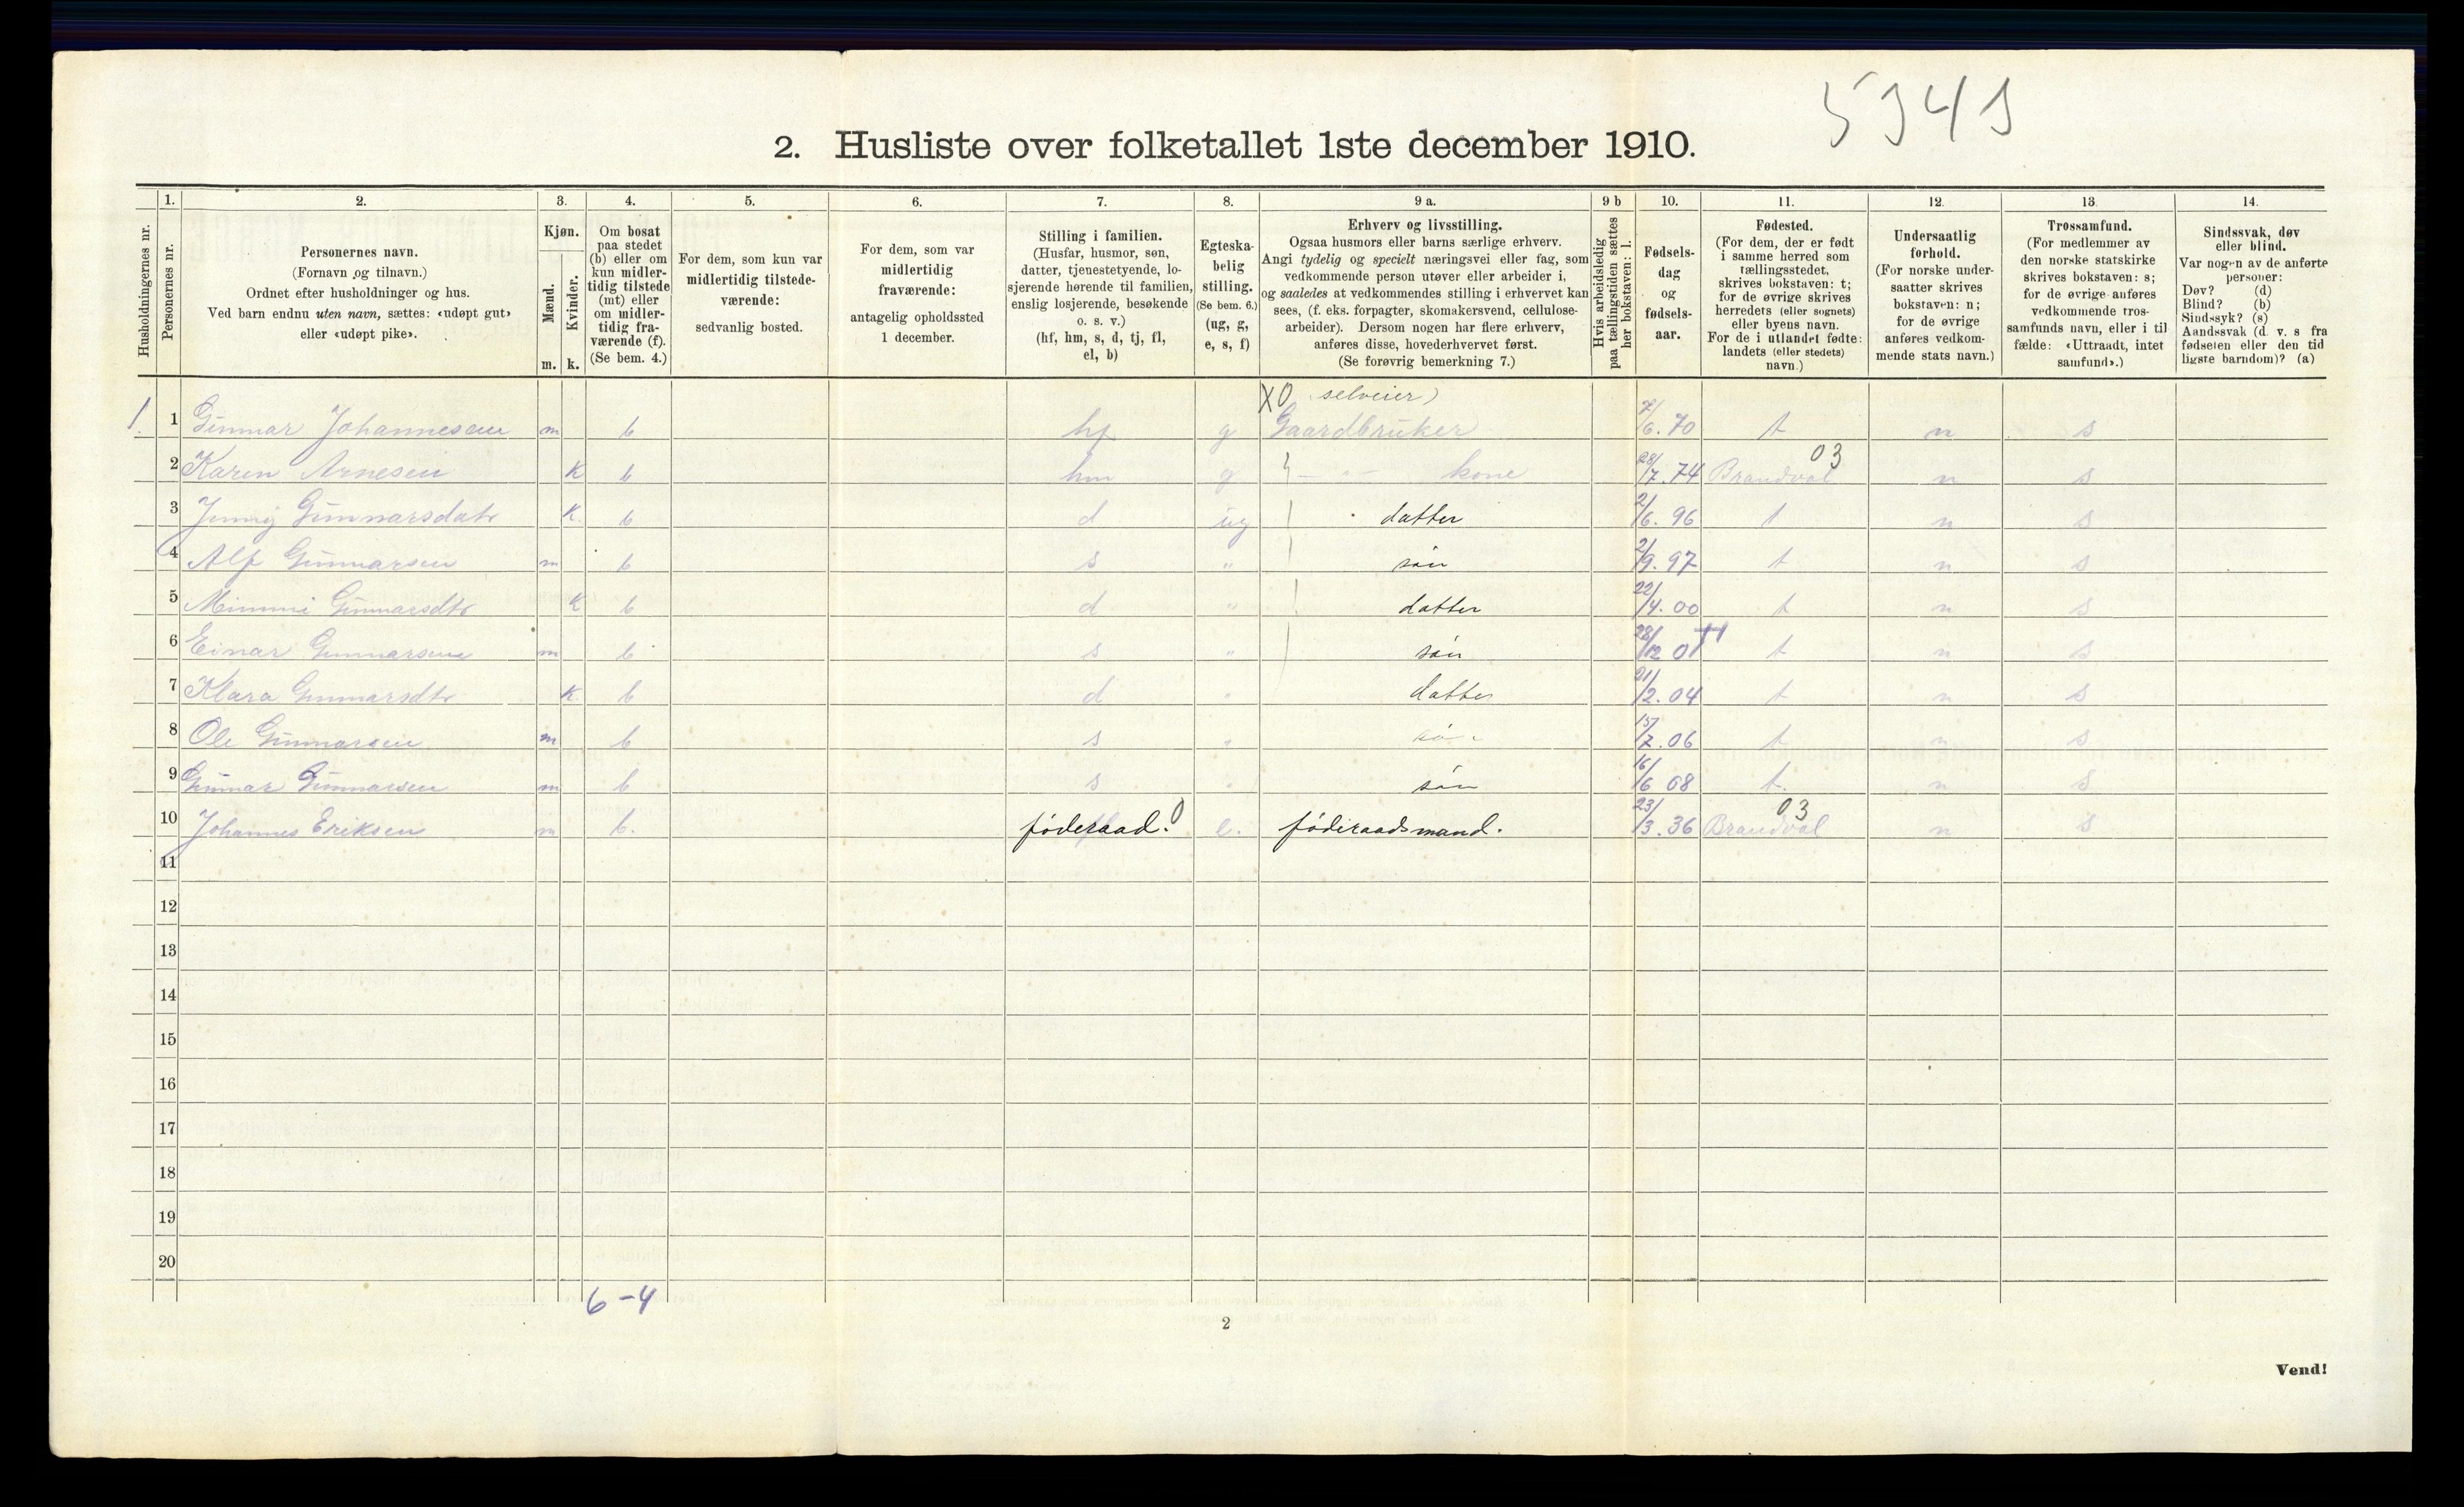 5941
2. Husliste over folketallet 1ste december 1910.
Husholdningernes nr.
1. Personernes nr.
2. Personernes navn. (Fornavn og tilnavn.) Ordnet efter husholdninger og hus. Ved barn endnu uten navn, sættes: «udøpt gut» eller «udøpt pike».
3. Kjøn. Mænd. m. Kvinder. k.
4. Om bosat paa stedet (b) eller om kun midlertidig tilstede (mt) eller om midlertidig fraværende (f). (Se bem. 4.)
5. For dem, som kun var midlertidig tilstedeværende: sedvanlig bosted.
6. For dem, som var midlertidig fraværende: antagelig opholdssted 1 december.
7. Stilling i familien. (Husfar, husmor, søn, datter, tjenestetyende, losjerende hørende til familien, enslig losjerende, besøkende o. s. v.) (hf, hm, s, d, tj, fl, el, b)
8. Egteskabelig stilling. (Se bem. 6.) (ug, g, e, s, f)
9 a. Erhverv og livsstilling. Ogsaa husmors eller barns særlige erhverv. Angi tydelig og specielt næringsvei eller fag, som vedkommende person utøver eller arbeider i, og saaledes at vedkommendes stilling i erhvervet kan sees, (f. eks. forpagter, skomakersvend, cellulosearbeider). Dersom nogen har flere erhverv, anføres disse, hovederhvervet først. (Se forøvrig bemerkning 7.)
9 b Hvis arbeidsledig paa tællingstiden sættes her bokstaven: l.
10. Fødselsdag og fødselsaar.
11. Fødested. (For dem, der er født i samme herred som tællingsstedet, skrives bokstaven: t; for de øvrige skrives herredets (eller sognets) eller byens navn. For de i utlandet fødte: landets (eller stedets) navn.)
12. Undersaatlig forhold. (For norske undersaatter skrives bokstaven: n; for de øvrige anføres vedkommende stats navn.)
13. Trossamfund. (For medlemmer av den norske statskirke skrives bokstaven: s; for de øvrige anføres vedkommende trossamfunds navn, eller i tilfælde: «Uttraadt, intet samfund».)
14. Sindssvak, døv eller blind. Var nogen av de anførte personer: Døv? (d) Blind? (b) Sindssyk? (s) Aandssvak (d. v. s. fra fødselen eller den tidligste barndom)? (a)
X0 selveier)
1. 1 Gunnar Johannesen m b hf g Gaardbruker 7/6.70 t n s
2 Karen Arnesen K b hm g — " — kone 28/7.74 Brandval 03 n s
3 Jenny Gunnarsdatr K. b d ug datter 2/6.96 t n s
4 Alf Gunnarsen m b s " søn 2/9.97 t n s
5 Mimmi Gunnarsdtr K b d " datter 22/4.00 t n s
6 Einar Gunnarsen m b s " søn 28/12 01 t n s
7 Klara Gunnarsdtr K. b d " datter 21/2.04 t n s
8 Ole Gunnarsen m b s " søn 15/7.06 t n s
9 Gunnar Gunnarsen m b s " søn 16/6 08 t. n s
10 Johannes Eriksen m b. føderaad. 0 e. føderaadsmand. 23/3.36 Brandval 03 n s
11
12
13
14
15
16
17
18
19
20
6-4
2
Vend!